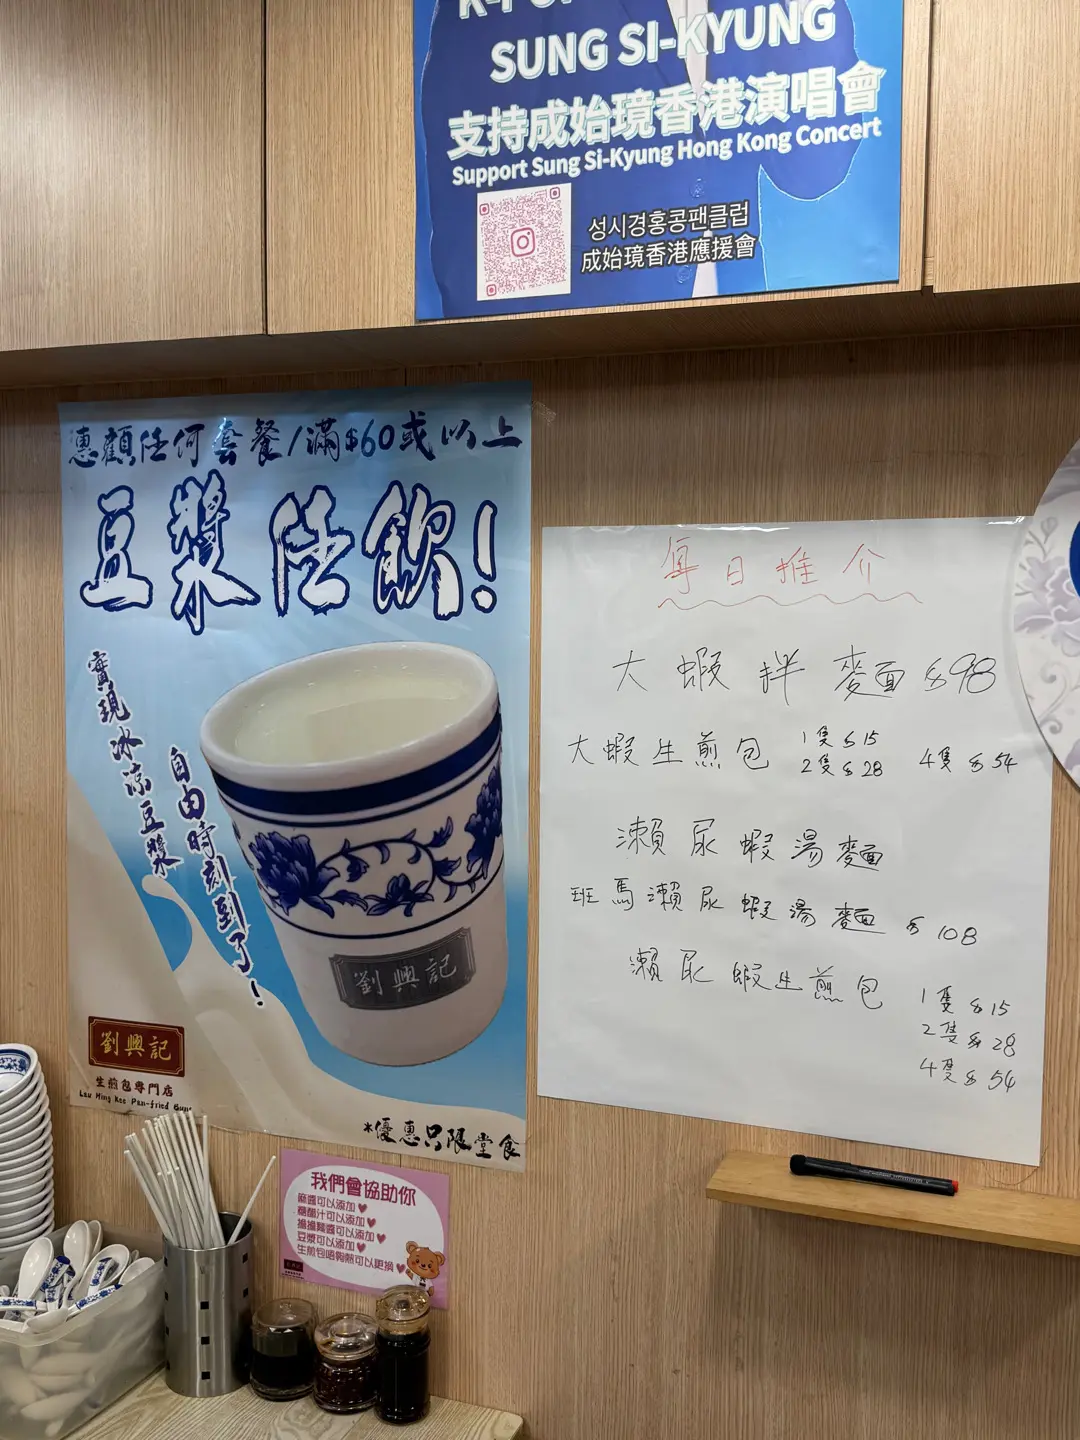 SUNG SI-KYUNG
支持成始璄香港演唱會
Support Sung Si-Kyung Hong Kong Concert
성시경홍콩팬클럽
成始璄香港應援會
惠顧任何套餐/滿$60或以上
豆漿任飲!
實現冰涼豆漿
自由時刻到了!
劉興記
劉興記
生煎包專門店
*優惠只限堂食
每日推介
大蝦拌麥面 $98
大蝦生煎包 1隻$15
2隻$28 4隻$54
瀨尿蝦湯麵
班馬瀨尿蝦湯麵 $108
瀨尿蝦生煎包 1隻$15
2隻$28
4隻$54
我們會協助你
麻醬可以添加♥
糖醋汁可以添加♥
擔擔麵醬可以添加♥
豆漿可以添加♥
生煎包唔夠熱可以更換♥